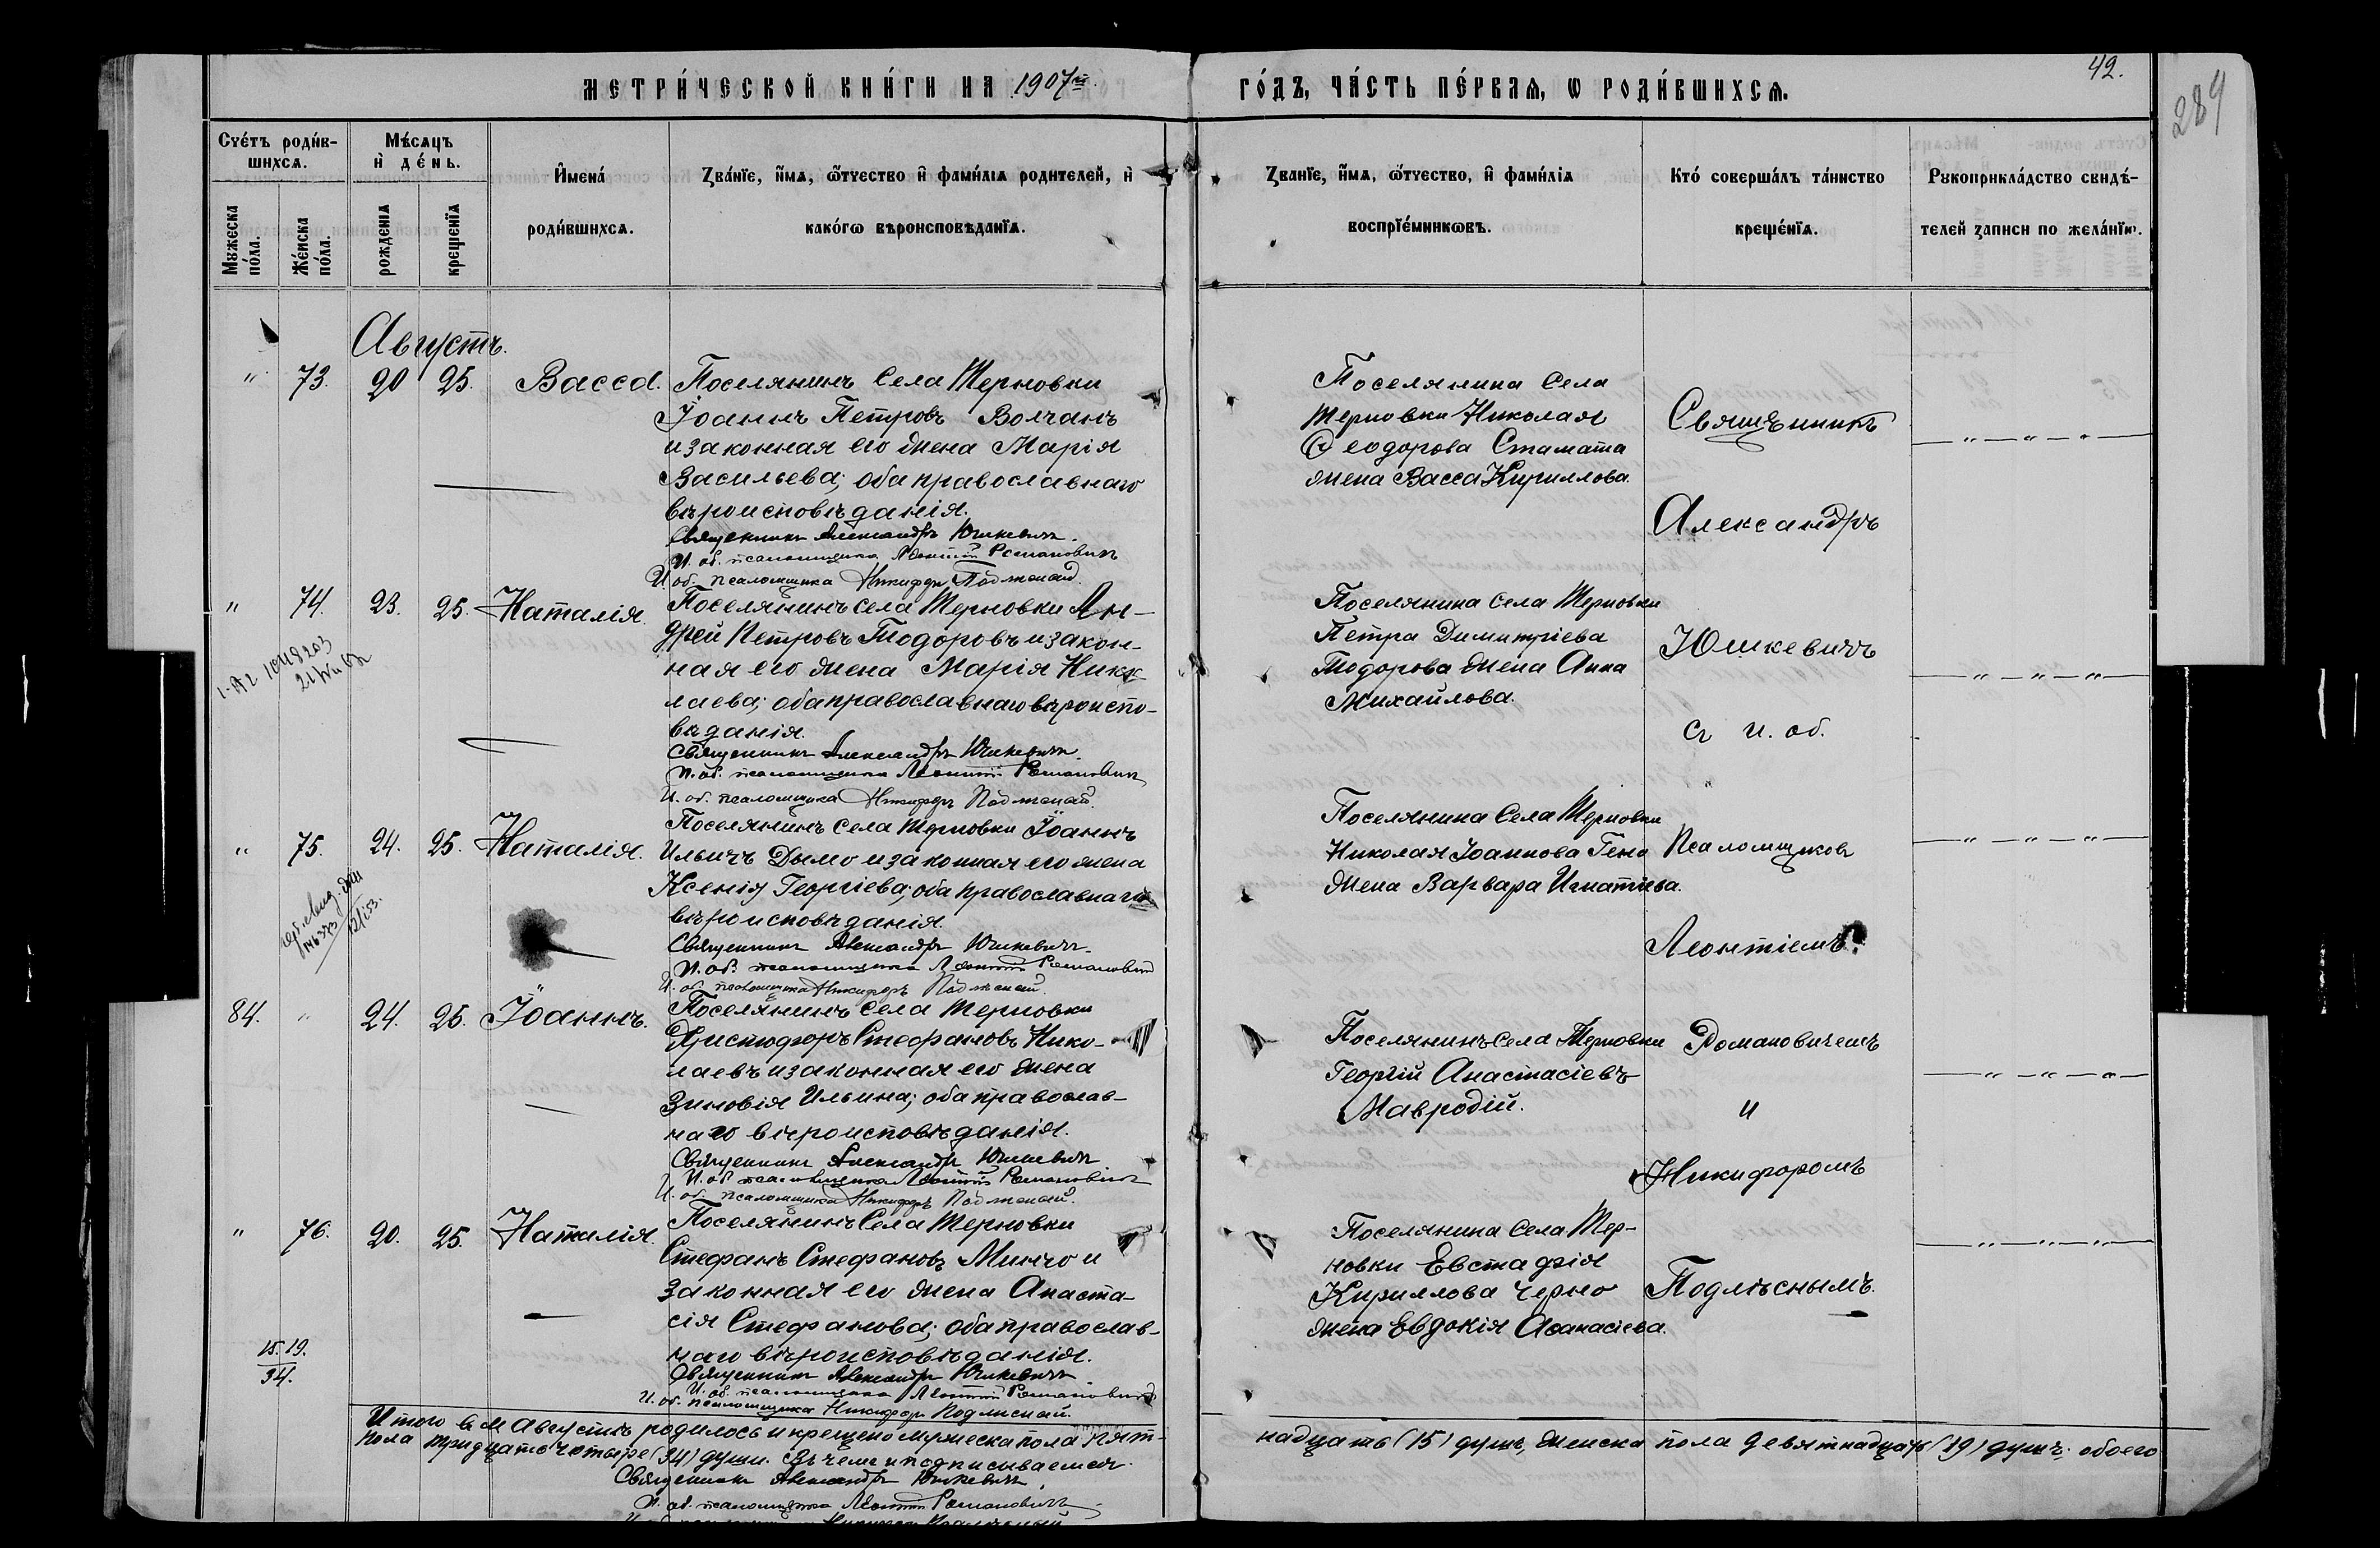 МЕТРИ́ЧЕСКОЙ КНИ́ГИ НА 1907й
ГО́ДЪ, ЧА́СТЬ ПЕ́РВАЯ, Ѡ РОДИ́ВШИХСЯ.
42.
289
Сче́тъ роди́в-
шихсѧ.
Мѣ́сѧцъ
и҆ де́нь.
И҆мена́
роди́вшихсѧ.
Зва́нїе, и҆́мѧ, ѻ҆́тчество и҆ фами́лїѧ родителей, и҆
како́гѡ вѣроисповѣданїѧ.
Зва́нїе, и҆́мѧ, ѻ҆́тчество, и҆ фами́лїѧ
воспрїе́мниковъ.
Кто́ соверша́лъ та́инство
креще́нїѧ.
Рукоприкла́дство свидѣ́-
телей записи по жела́нїю.
Мужеска
по́ла.
Же́нска
по́ла.
рожденїѧ
крещенїѧ
Августъ.
" 73. 20 25. Васса.
Поселянинъ села Терновки
Іоаннъ Петровъ Волчанъ
и законная его жена Марія
Васильева; оба православнаго
вѣроисповѣданія.
Священникъ Александръ Юшкевичъ.
И. об. псаломщика Леонтій Романовичъ
И. об. псаломщика Никифоръ Подлѣсный.
Поселянина села
Терновки Николая
Ѳеодорова Стамата
жена Васса Кириллова.
Священникъ
Александръ
" 74. 23. 25. Наталія.
Поселянинъ села Терновки Ан-
дрей Петровъ Тодоровъ и закон-
ная его жена Марія Нико-
лаева; оба православнаго вѣроиспо-
вѣданія.
Священникъ Александръ Юшкевичъ.
И. об. псаломщика Леонтій Романовичъ
И. об. псаломщика Никифоръ Подлѣсный.
Поселянина села Терновки
Петра Димитріева
Тодорова жена Анна
Михайлова.
Юшкевичъ
съ и. об.
" 75. 24. 25. Наталія.
Поселянинъ села Терновки Іоаннъ
Ильичъ Дымо и законная его жена
Ксенія Георгіева; оба православнаго
вѣроисповѣданія.
Священникъ Александръ Юшкевичъ.
И. об. псаломщика Леонтій Романовичъ
И. об. псаломщика Никифоръ Подлѣсный.
Поселянина села Терновки
Николая Іоаннова Гено
жена Варвара Игнатіева.
Псаломщиковъ
Леонтіемъ
84. " 24. 25. Іоаннъ.
Поселянинъ села Терновки
Христофоръ Стефановъ Нико-
лаевъ и законная его жена
Зиновія Ильина; оба православ-
наго вѣроисповѣданія.
Священникъ Александръ Юшкевичъ
И. об. псаломщика Леонтій Романовичъ
И. об. псаломщика Никифоръ Подлѣсный.
Поселянинъ села Терновки
Георгій Анастасіевъ
Мавродій.
Романовичемъ
и
Никифоромъ
" 76. 20. 25. Наталія.
Поселянинъ села Терновки
Стефанъ Стефановъ Минчо и
законная его жена Анаста-
сія Стефанова; оба православ-
наго вѣроисповѣданія.
Священникъ Александръ Юшкевичъ.
И. об. псаломщика Леонтій Романовичъ
И. об. псаломщика Никифоръ Подлѣсный.
Поселянина села Тер-
новки Евстафія
Кириллова Черно
жена Евдокія Аѳанасіева.
Подлѣснымъ.
15. 19.
34.
Итого в м Августѣ родилось и крещено мужеска пола пят-
надцать (15) душъ, женска пола девятнадцать (19) душъ; обоего
пола тридцать четыре (34) души. Въ чемъ и подписываемся.
Священникъ Александръ Юшкевичъ.
И. об. псаломщика Леонтій Романовичъ